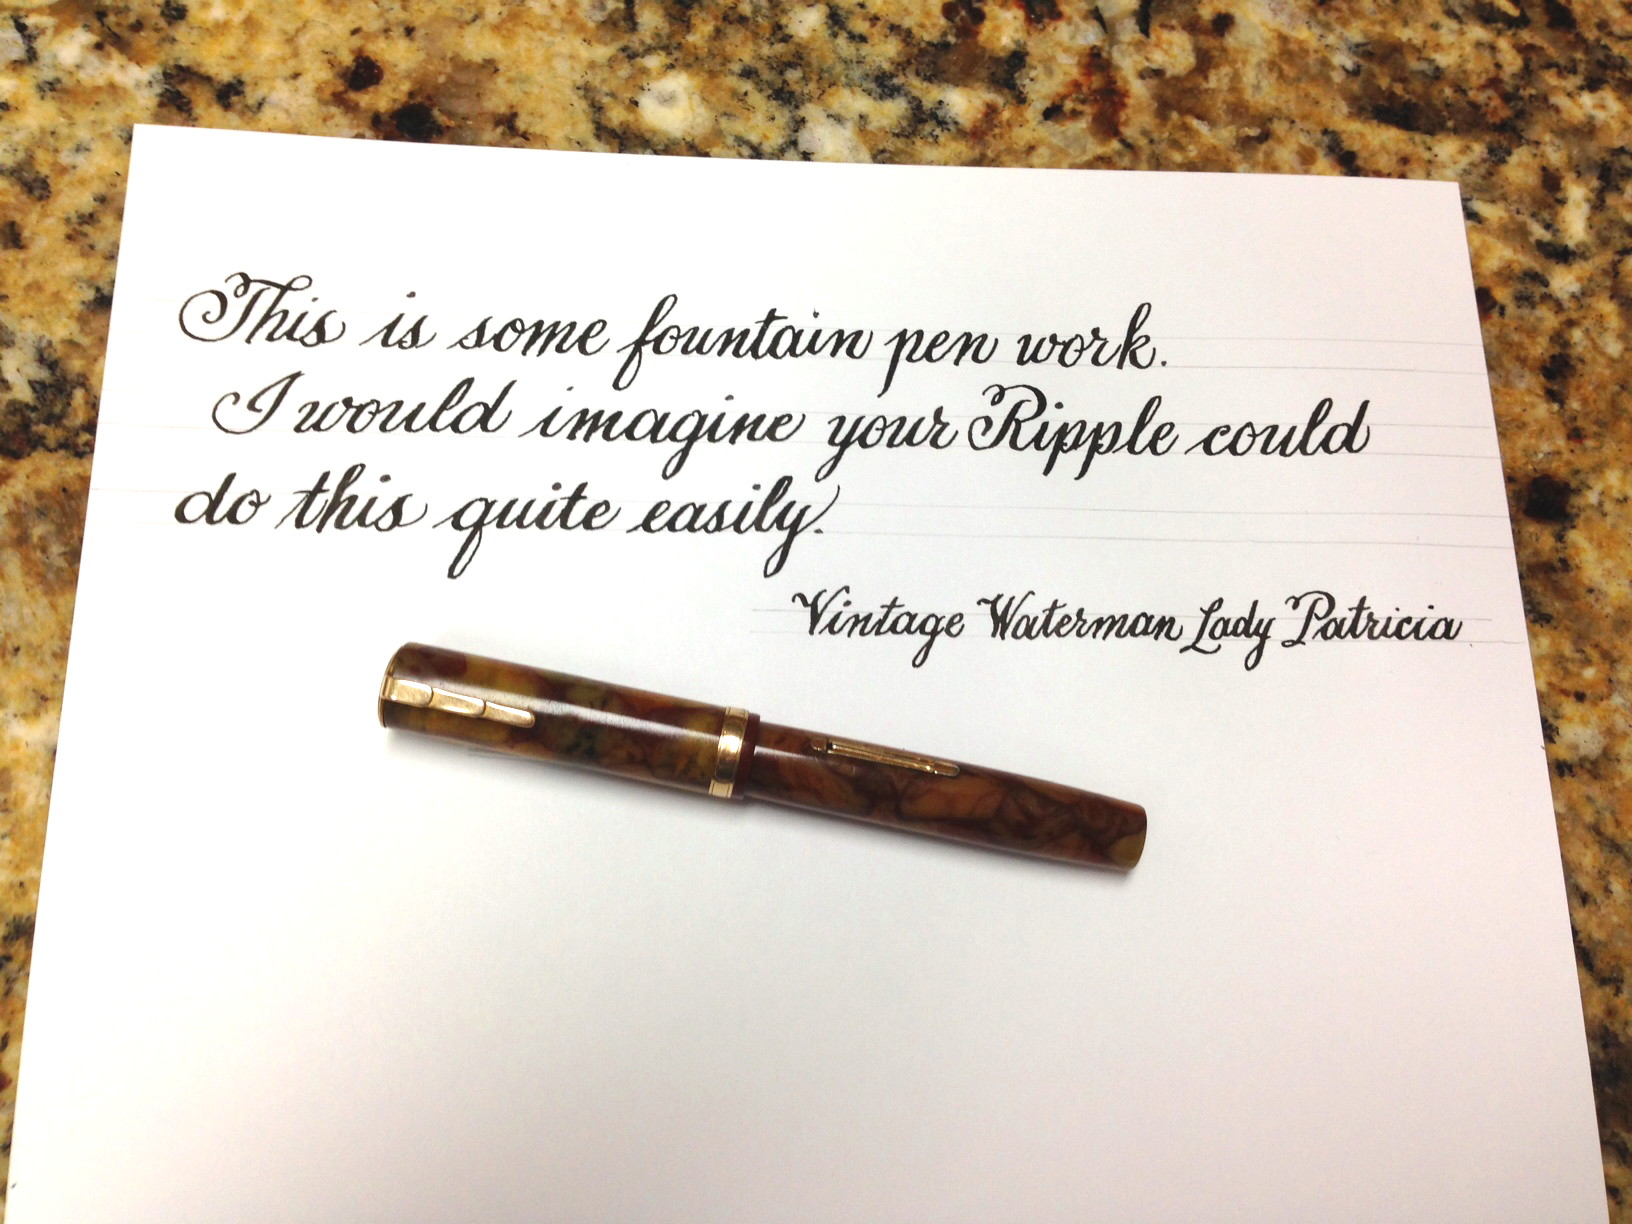 This is some fountain pen work.
I would imagine your Ripple could
do this quite easily.
Vintage Waterman Lady Patricia